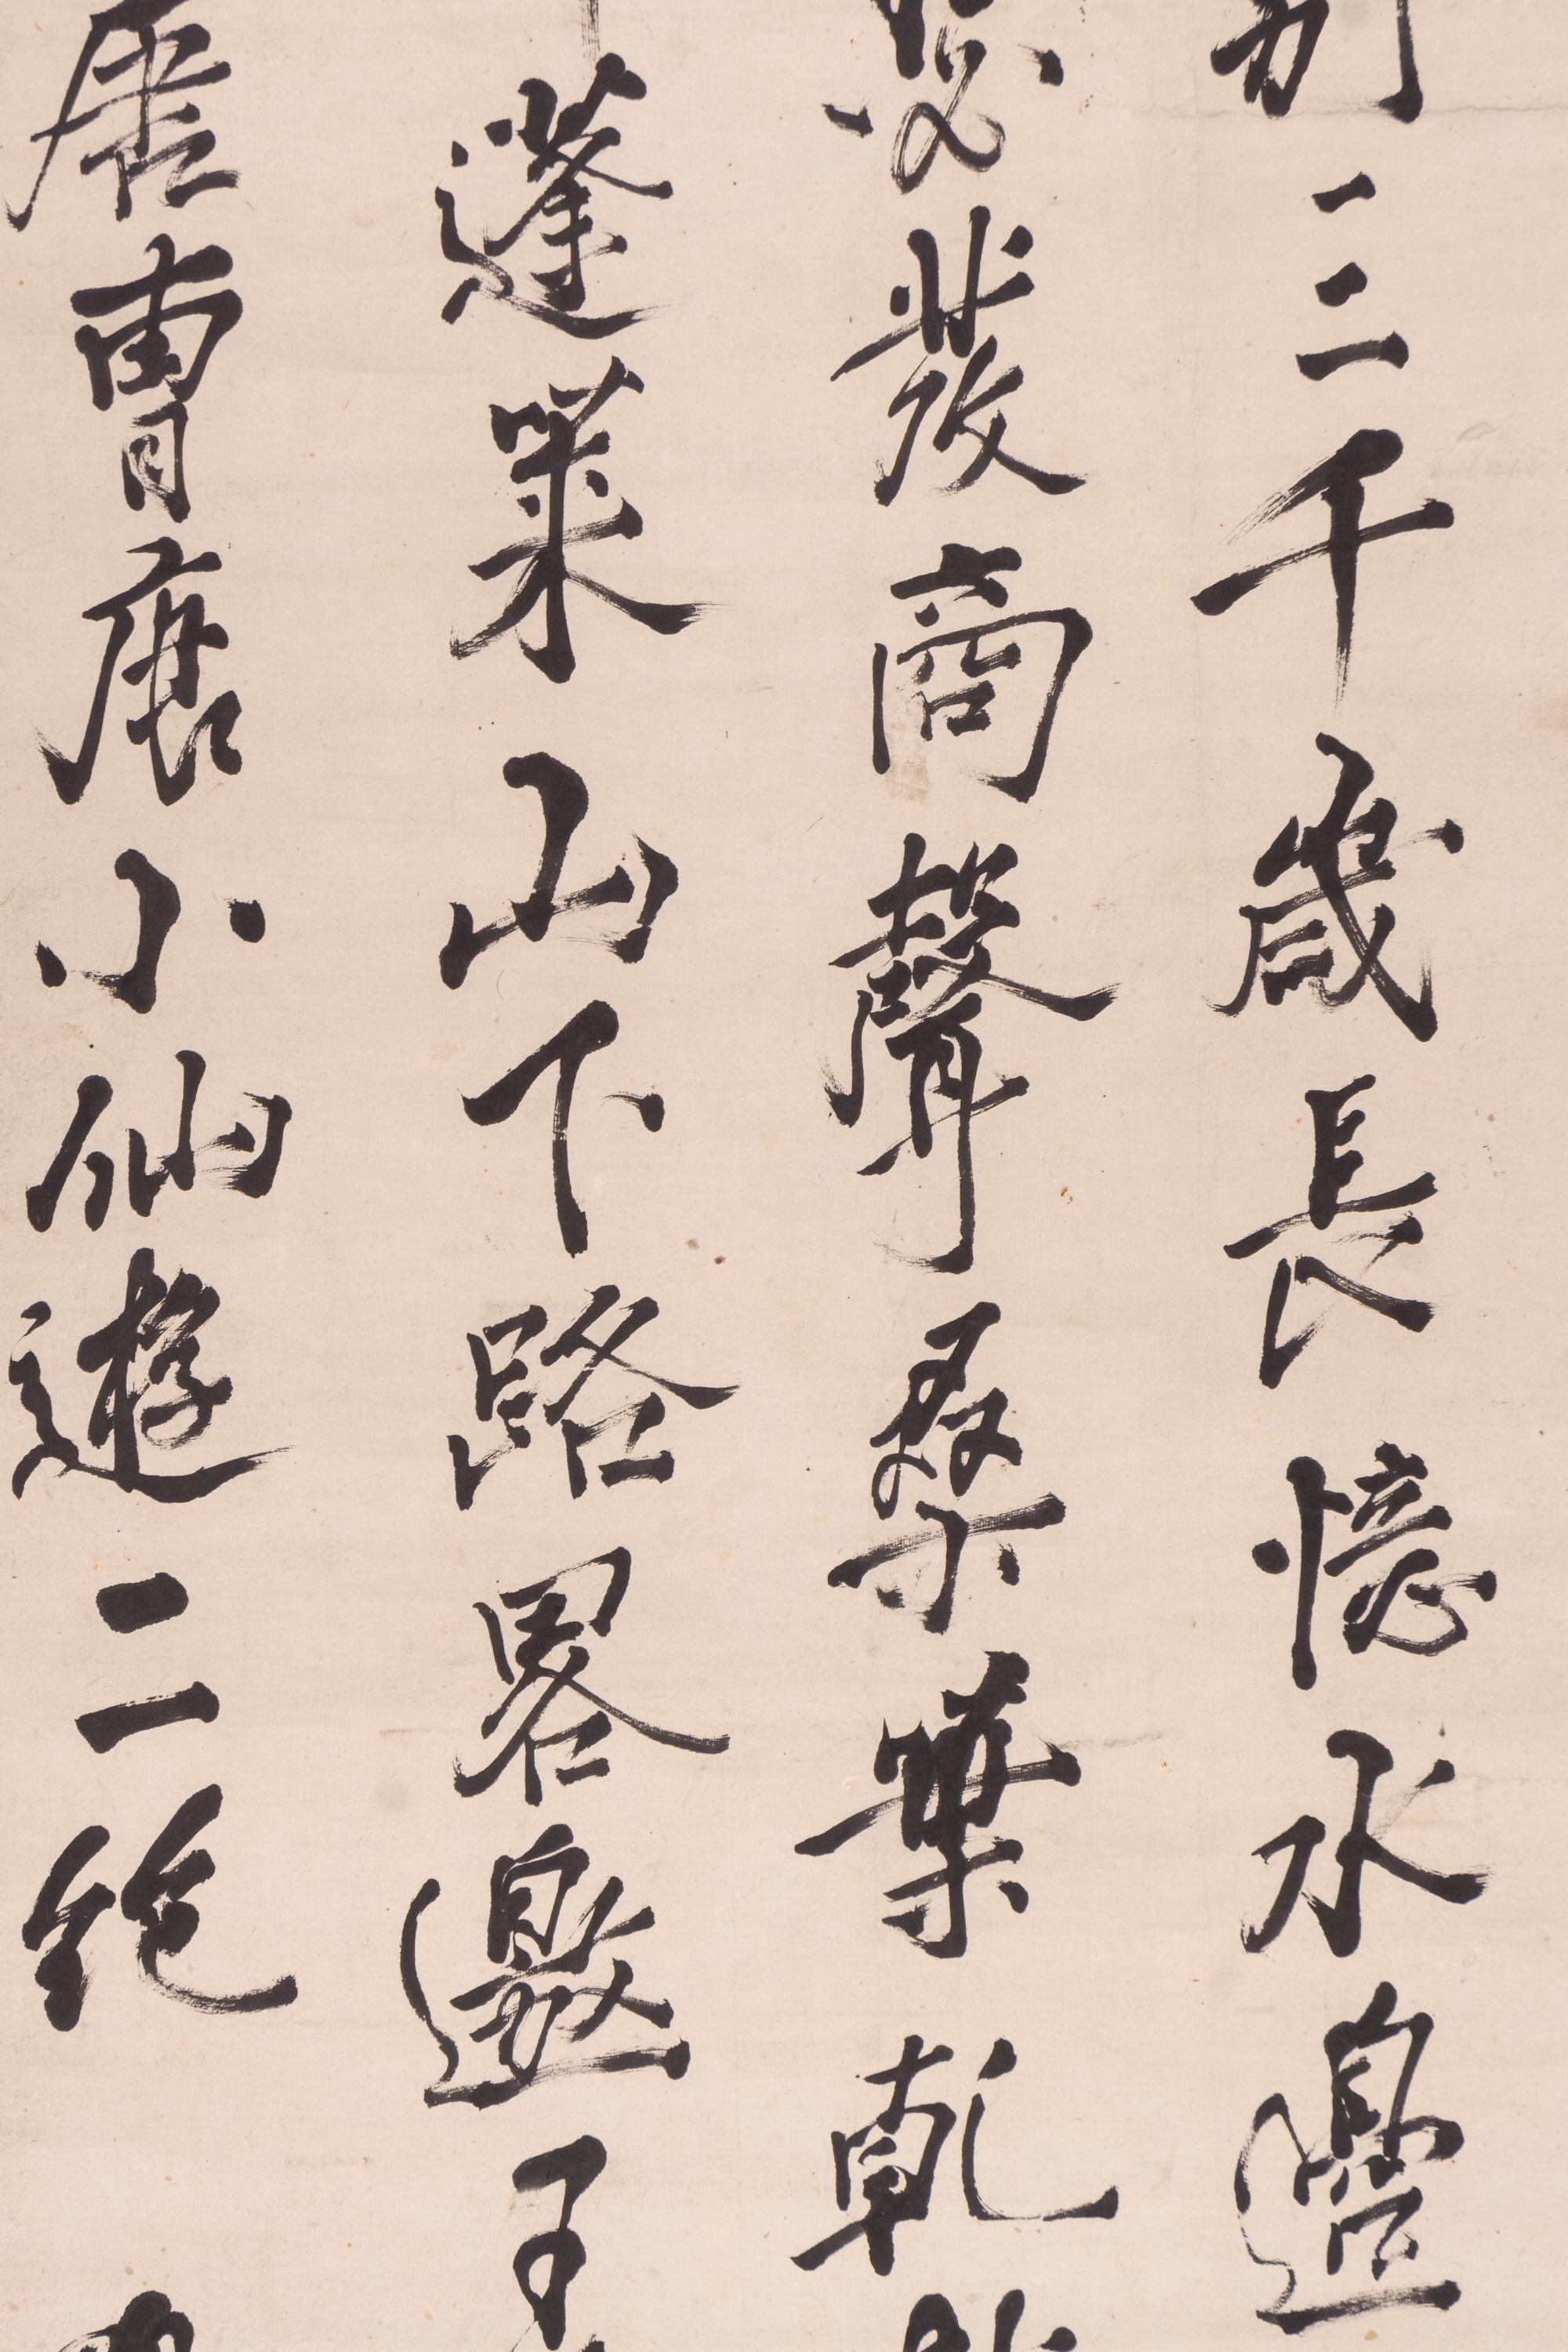 別三千歲長憶水邊
發商聲桑葉乾
蓬萊山下路畧邀王
曹唐小仙遊二絕